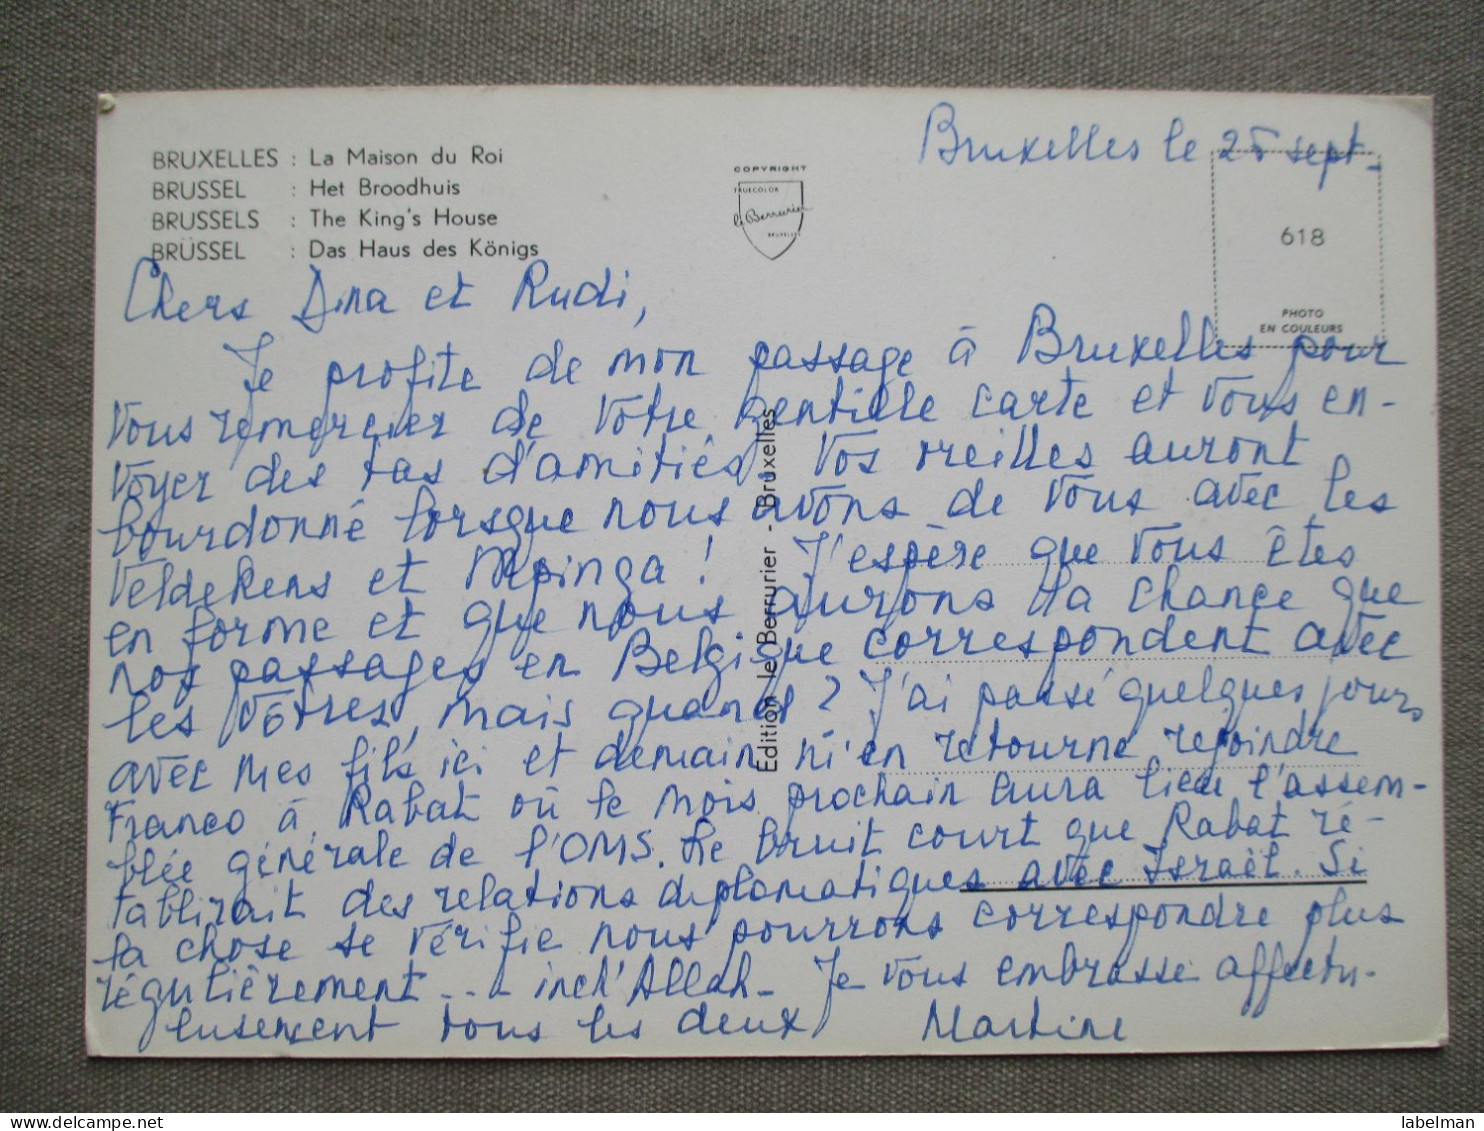 Bruxelles le 25 sept-
BRUXELLES : La Maison du Roi
BRUSSEL : Het Broodhuis
BRUSSELS : The King's House
BRÜSSEL : Das Haus des Königs
COPYRIGHT
TRUECOLOR
le Berrurier
BRUXELLES
618
PHOTO
EN COULEURS
Chers Dina et Rudi,
Je profite de mon passage à Bruxelles pour
vous remercier de votre gentille carte et vous en-
voyer des tas d'amitiés. Vos oreilles auront
bourdonné lorsque nous avons de vous avec les
Veldekens et Mpinga ! J'espère que vous êtes
en forme et que nous aurons la chance que
nos passages en Belgique correspondent avec
les vôtres, mais quand ? J'ai passé quelques jours
avec mes fils ici et demain m'en retourne rejoindre
Franco à Rabat où le mois prochain aura lieu l'assem-
blée générale de l'OMS. Le bruit court que Rabat ré-
tablirait des relations diplomatiques avec Israël. Si
la chose se vérifie nous pourrons correspondre plus
régulièrement ... inch'Allah - Je vous embrasse affectu-
eusement tous les deux Martine
Edition le Berrurier - Bruxelles
labelman
www.delcampe.net